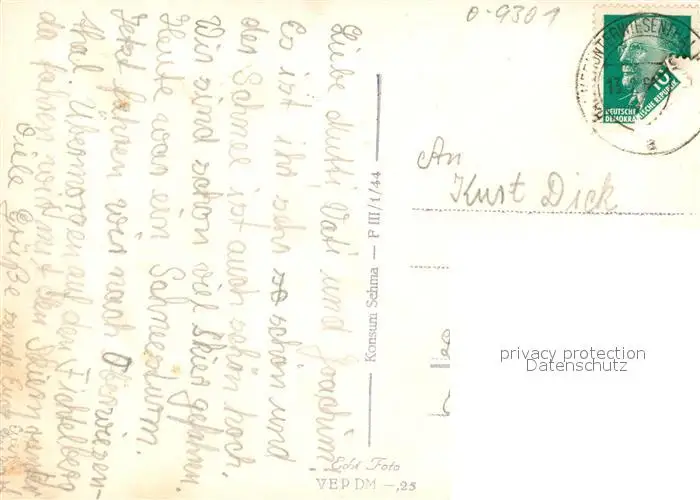 Liebe Mutti, Vati und Joachim!
Es ist ihr sehr schön und
der Schnee ist auch schön hoch.
Wir sind schon viel Skier gefahren.
Heute war ein Schneesturm.
Jetzt fahren wir nach Oberwiesen-
thal Übermorgen auf den Fichtelberg
da fahren wir mit den Skiern runter
Viele Grüße sendet Euer
Konsum Sehma — F III/1/44
Echt Foto
VEP DM —,25
0-9301
OBERWIESENTHAL
a
10
DEUTSCHE
DEMOKRATISCHE REPUBLIK
An
Kurt Dick
privacy protection
Datenschutz